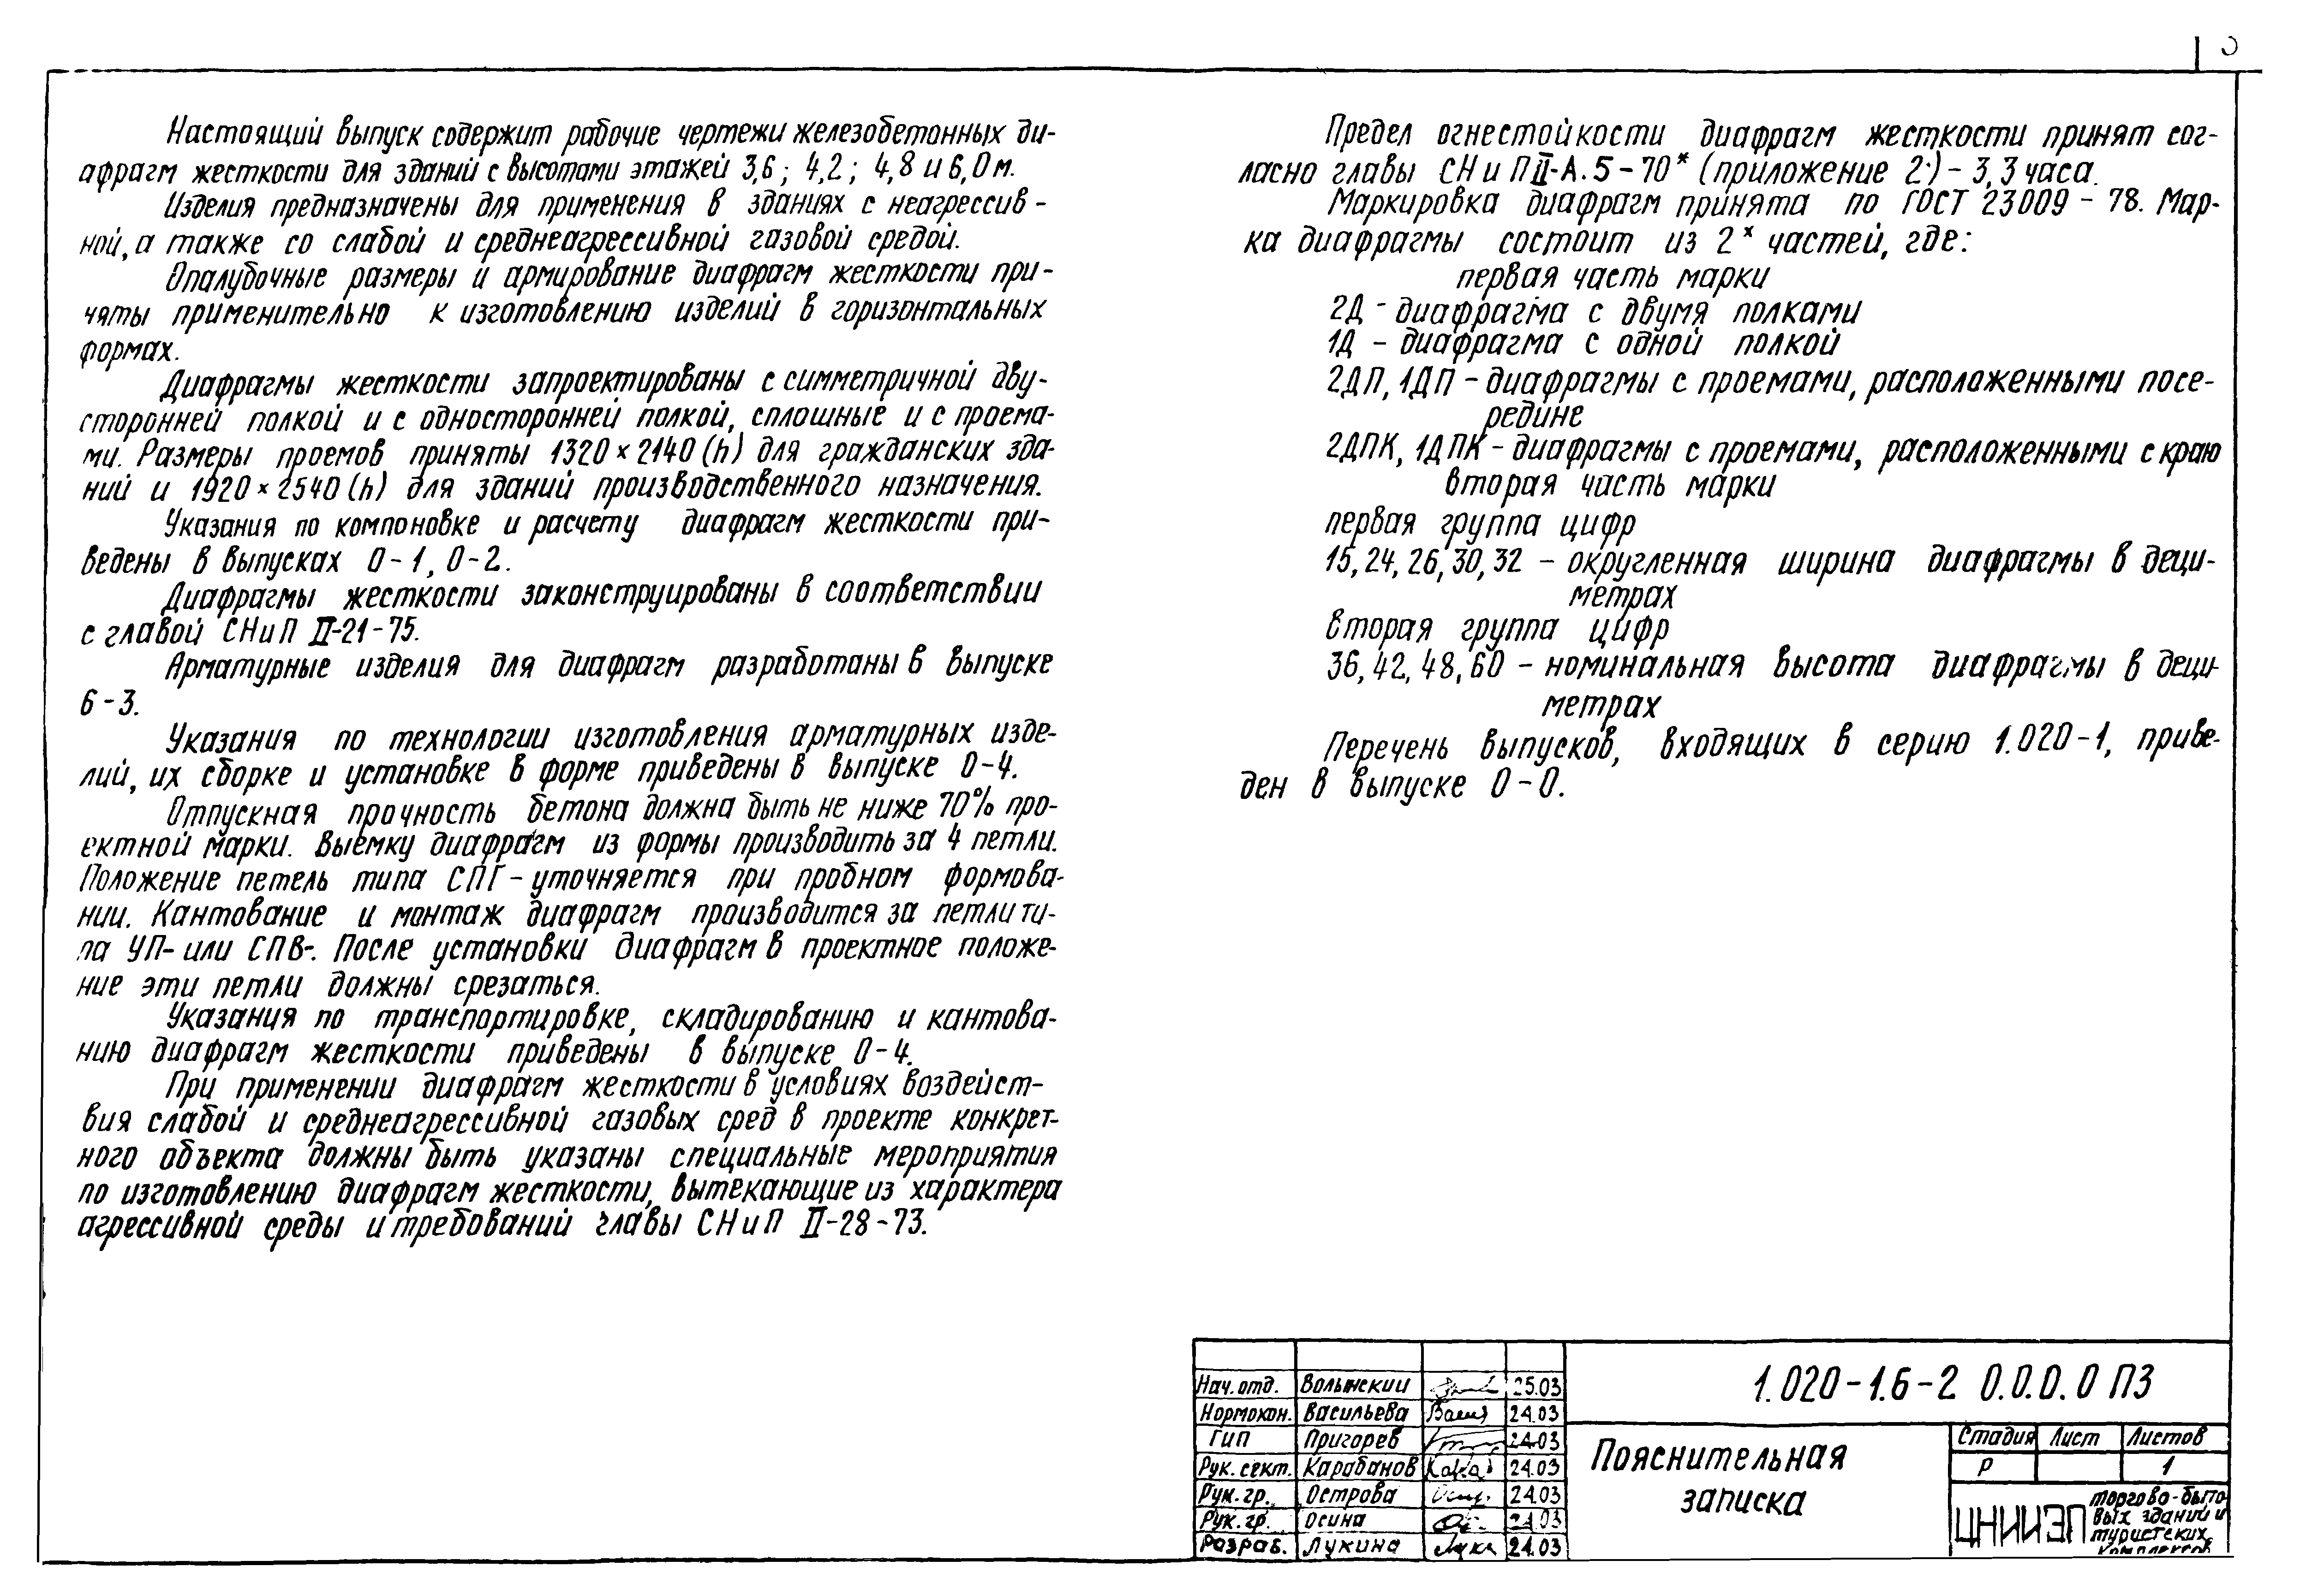 Настоящий выпуск содержит рабочие чертежи железобетонных ди-
афрагм жесткости для зданий с высотами этажей 3,6; 4,2; 4,8 и 6,0 м.
Изделия предназначены для применения в зданиях с неагрессив-
ной, а также со слабой и среднеагрессивной газовой средой.
Опалубочные размеры и армирование диафрагм жесткости при-
няты применительно к изготовлению изделий в горизонтальных
формах.
Диафрагмы жесткости запроектированы с симметричной дву-
сторонней полкой и с односторонней полкой, сплошные и с проема-
ми. Размеры проемов приняты 1320 × 2140 (h) для гражданских зда-
ний и 1920 × 2540 (h) для зданий производственного назначения.
Указания по компоновке и расчету диафрагм жесткости при-
ведены в выпусках 0-1, 0-2.
Диафрагмы жесткости законструированы в соответствии
с главой СНиП II-21-75.
Арматурные изделия для диафрагм разработаны в выпуске
6-3.
Указания по технологии изготовления арматурных изде-
лий, их сборке и установке в форме приведены в выпуске 0-4.
Отпускная прочность бетона должна быть не ниже 70% про-
ектной марки. Выемку диафрагм из формы производить за 4 петли.
Положение петель типа СПГ-уточняется при пробном формова-
нии. Кантование и монтаж диафрагм производится за петли ти-
па УП- или СПВ-. После установки диафрагм в проектное положе-
ние эти петли должны срезаться.
Указания по транспортировке, складированию и кантова-
нию диафрагм жесткости приведены в выпуске 0-4.
При применении диафрагм жесткости в условиях воздейст-
вия слабой и среднеагрессивной газовых сред в проекте конкрет-
ного объекта должны быть указаны специальные мероприятия
по изготовлению диафрагм жесткости, вытекающие из характера
агрессивной среды и требований главы СНиП II-28-73.
Предел огнестойкости диафрагм жесткости принят сог-
ласно главы СНиП II-А.5-70* (приложение 2) - 3,3 часа.
Маркировка диафрагм принята по ГОСТ 23009-78. Мар-
ка диафрагмы состоит из 2х частей, где:
первая часть марки
2Д - диафрагма с двумя полками
1Д - диафрагма с одной полкой
2ДП, 1ДП - диафрагмы с проемами, расположенными посе-
редине
2ДПК, 1ДПК - диафрагмы с проемами, расположенными с краю
вторая часть марки
первая группа цифр
15, 24, 26, 30, 32 - округленная ширина диафрагмы в деци-
метрах
вторая группа цифр
36, 42, 48, 60 - номинальная высота диафрагмы в деци-
метрах
Перечень выпусков, входящих в серию 1.020-1, приве-
ден в выпуске 0-0.
1.020-1.6-2 0.0.0.0 ПЗ
Нач. отд. Волынский 25.03
Нормокон. Васильева 24.03
ГИП Пригорев 24.03
Рук. сект. Карабанов 24.03
Рук. гр. Острова 24.03
Рук. гр. Осина 24.03
Разраб. Лукина 24.03
Пояснительная
записка
Стадия Лист Листов
Р 1
ЦНИИЭП торгово-быто-
вых зданий и
туристских
комплексов